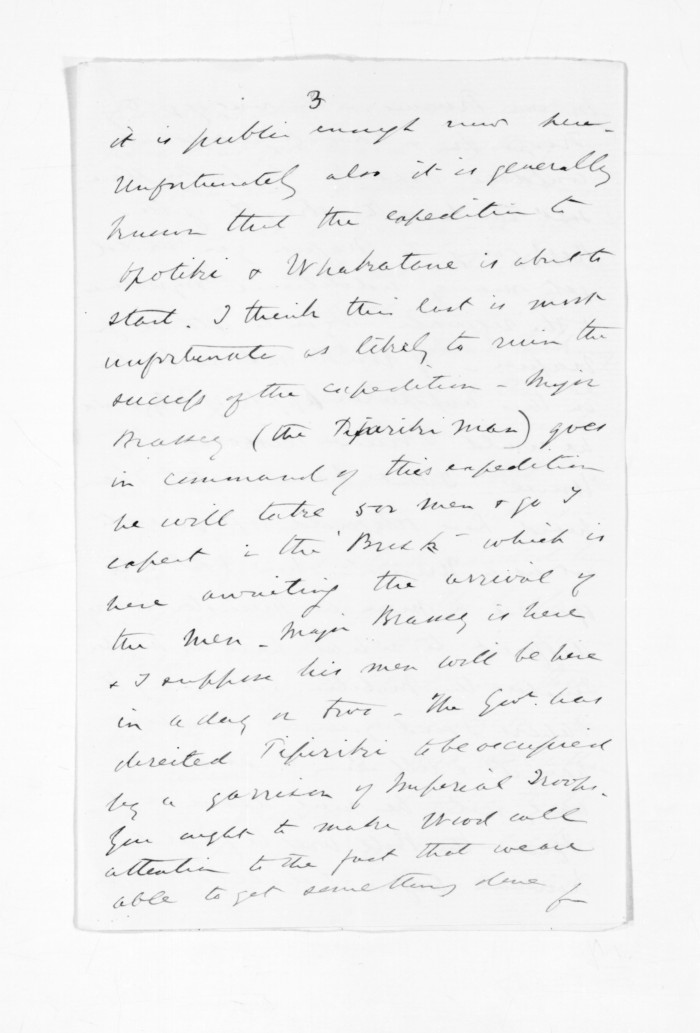 3
it is public enough now here -
Unfortunately also it is generally
known that the expedition to
Opotiki & Whakatane is about to
start. I think this last is most
unfortunate as likely to ruin the
success of the expedition - Major
Brassey (the Pipiriki Man) goes
in command of this expedition
he will take 500 men & go I
expect in the "Brisk" which is
here awaiting the arrival of
the men - Major Brassey is here
& I suppose his men will be here
in a day or two - The Govt. has
directed Pipiriki to be occupied
by a garrison of Imperial Troops.
You ought to make Wood call
attention to the fact that we are
able to get something done
for